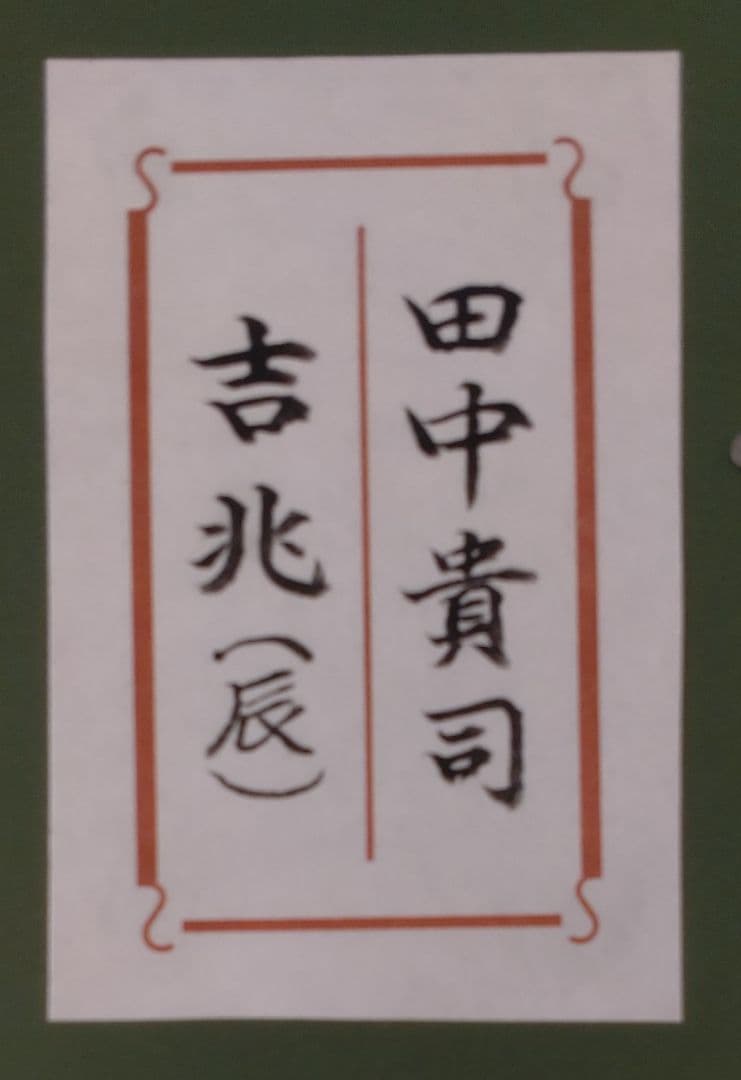 田中貴司
吉兆(辰)